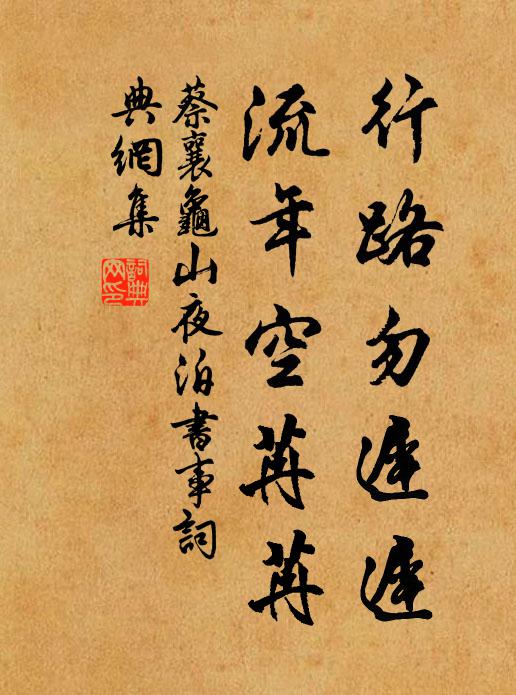 行路勿遲遲
流年空苒苒
蔡襄龜山夜泊書事詞
典網集
詞典網印